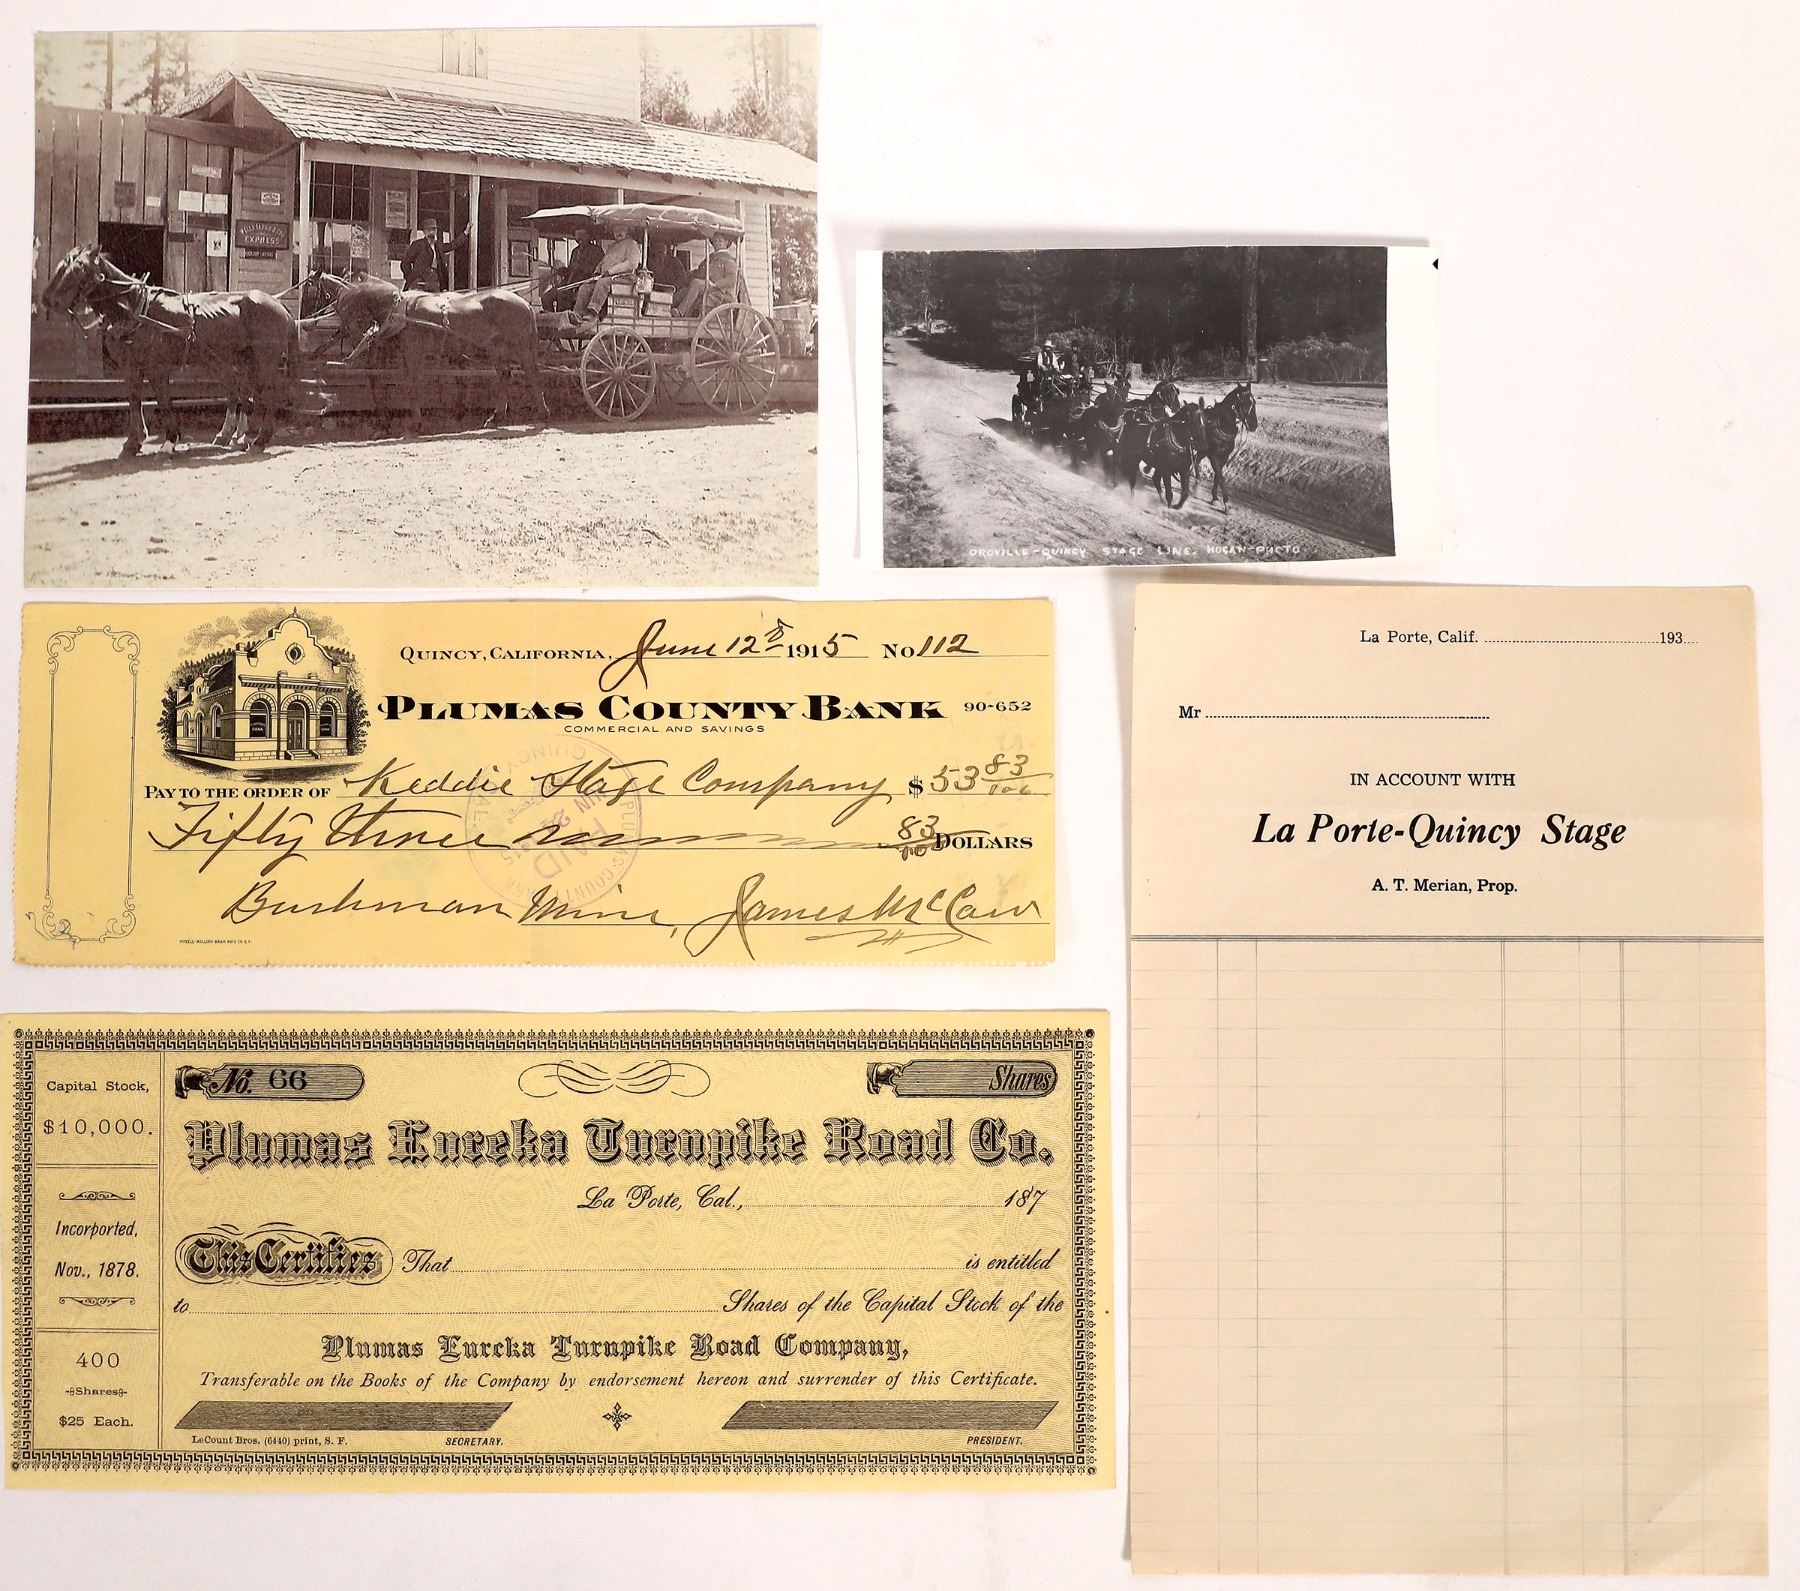 WELLS FARGO & CO
EXPRESS
OROVILLE-QUINCY STAGE LINE. HOGAN-PHOTO
QUINCY, CALIFORNIA, June 12th 1915 No 112
PLUMAS COUNTY BANK 90-652
COMMERCIAL AND SAVINGS
PAY TO THE ORDER OF Keddie Stage Company $ 53 83/100
Fifty three 83/100 DOLLARS
Bushman Mine, James McCaw
PLUMAS COUNTY BANK
PAID
JUN 24 1915
QUINCY, CAL.
La Porte, Calif. 193
Mr
IN ACCOUNT WITH
La Porte-Quincy Stage
A. T. Merian, Prop.
Capital Stock,
$10,000.
Incorporated,
Nov., 1878.
400
Shares
$25 Each.
No. 66 Shares
Plumas Eureka Turnpike Road Co.
La Porte, Cal., 187
This Certifies That is entitled
to Shares of the Capital Stock of the
Plumas Eureka Turnpike Road Company,
Transferable on the Books of the Company by endorsement hereon and surrender of this Certificate.
LeCount Bros. (6440) print, S. F. SECRETARY. PRESIDENT.